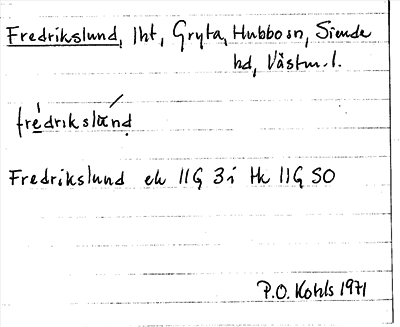 Fredrikslund, lht, Gryta, Hubbo sn, Siende
hd, Västm. l.
frédrikslùnd
Fredrikslund ek 11G 3i Hk 11G SO
P.O. Kohls 1971